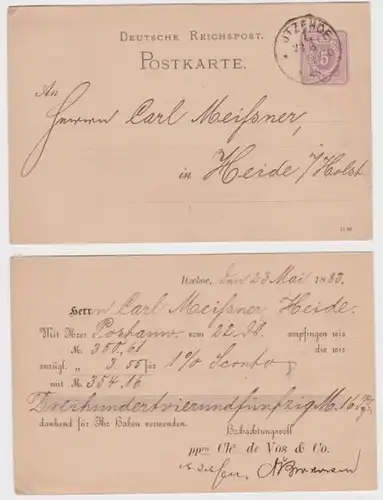 DEUTSCHE REICHSPOST.
POSTKARTE.
ITZEHOE
An
Herrn Carl Meißner
in Heide i/Holst.
Itzehoe, den 23 Mai 1883.
Herrn Carl Meißner Heide.
Mit Ihrer Postanw. vom 22. empfingen wir
M. 350,61 die wir
zuzügl. „ 3.55 für 1% Sconto
mit M. 354.16
Dreihundertvierundfünfzig M. 16
dankend für Ihr Haben verwenden.
Hochachtungsvoll
ppa Cls. de Vos & Co.